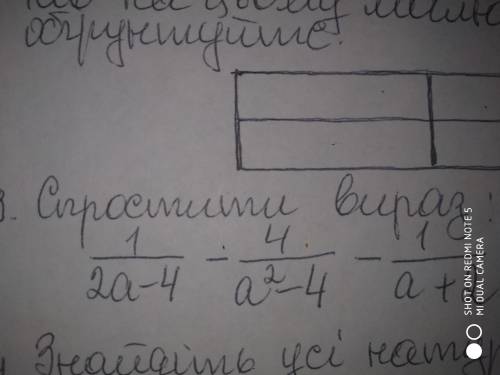 обґрунтуйте.
3. Спростити вираз:
1/(2a-4) - 4/(a²-4) - 1/(a+
Знайдіть усі
SHOT ON REDMI NOTE 5
MI DUAL CAMERA